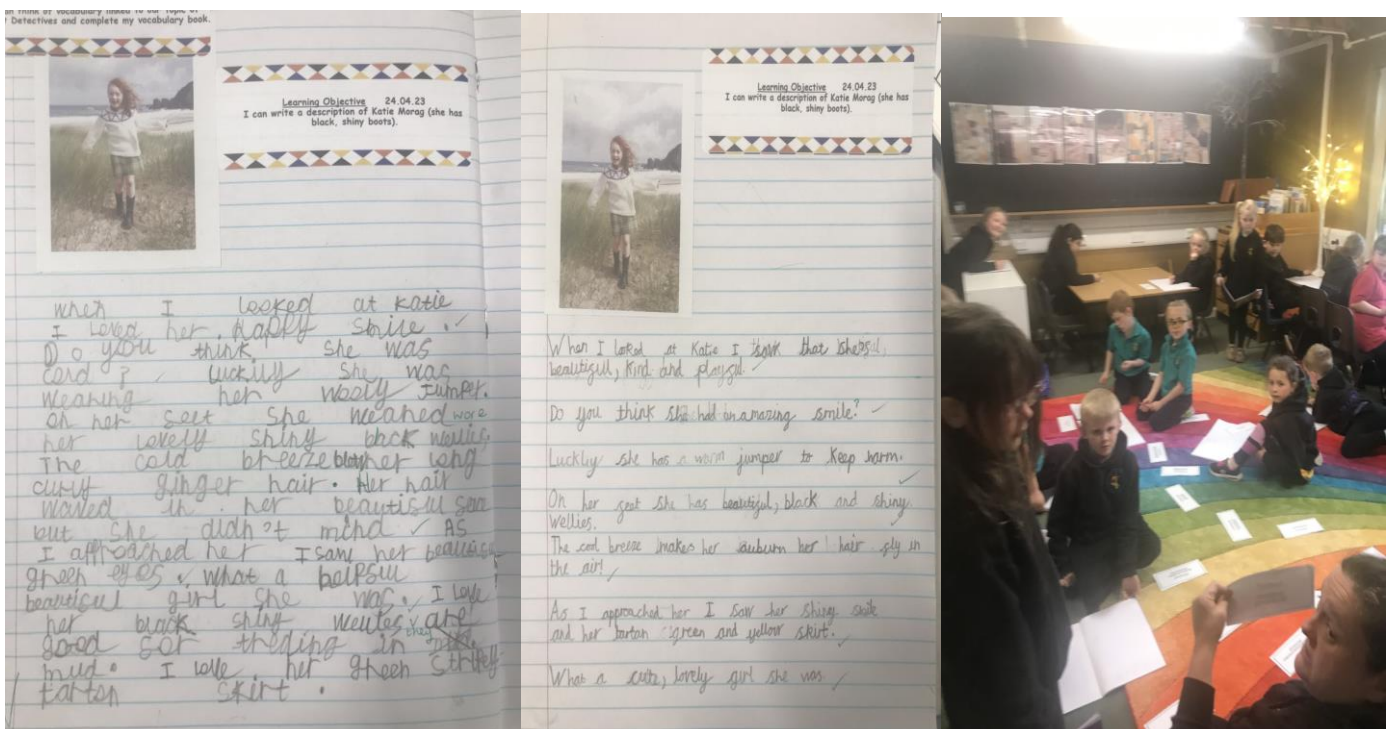 an think of vocabulary linked to our topic of
Detectives and complete my vocabulary book.
Learning Objective 24.04.23
I can write a description of Katie Morag (she has
black, shiny boots).
when I looked at Katie
I loved her happy smile.
Do you think she was
cord? Luckily she was
weaning her wooly Jumper.
on her seet she weaned wore
her lovely shiny back wellies.
The cold breeze blow her long
curly ginger hair. Her hair
waved in her beautisul
but she didn't mind As
I approached her I saw her
green eyes. What a helpsul
beautisul girl she was. I love
her black shiny are
they
good sor in
mud. I love her green
tarton skirt.
Learning Objective 24.04.23
I can write a description of Katie Morag (she has
black, shiny boots).
When I looked at Katie I that
beautisul, kind and
Do you think she had an amazing smile?
Luckley she has a warm jumper to keep harm.
On her seet she has beautisul, black and shiny
wellies.
The cool breeze makes her auburn her hair sly in
the air!
As I approached her I saw her shiny
and her tartan green and yellow skirt.
What a cute, lovely girl she was